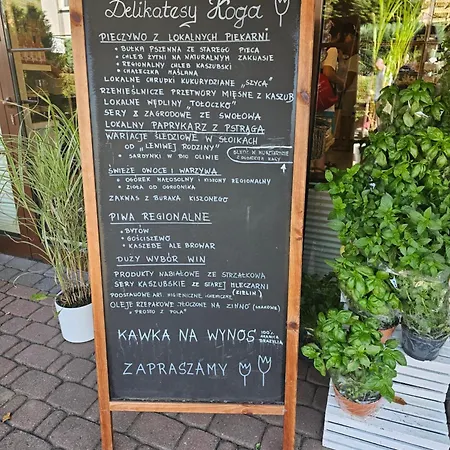 Delikatesy Koga
PIECZYWO Z LOKALNYCH PIEKARNI
• BUŁKA PSZENNA ZE STAREGO PIECA
• CHLEB ŻYTNI NA NATURALNYM ZAKWASIE
• REGIONALNY CHLEB KASZUBSKI
• CHAŁECZKA MAŚLANA
LOKALNE CHRUPKI KUKURYDZIANE „SZYCA"
RZEMIEŚLNICZE PRZETWORY MIĘSNE Z KASZUB
LOKALNE WĘDLINY „TOŁOCZKO"
SERY ZAGRODOWE ZE SWOŁOWA
LOKALNY PAPRYKARZ Z PSTRĄGA
WARIACJE ŚLEDZIOWE W SŁOIKACH
OD „LENIWEJ RODZINY"
• SARDYNKI W BIO OLIWIE
ŚWIEŻE OWOCE I WARZYWA
• OGÓREK MAŁOSOLNY I KISZONY REGIONALNY
• ZIOŁA OD OGRODNIKA
ZAKWAS Z BURAKA KISZONEGO
PIWA REGIONALNE
• BYTÓW
• GOŚCISZEWO
• KASZEBE ALE BROWAR
DUŻY WYBÓR WIN
PRODUKTY NABIAŁOWE ZE STRZAŁKOWA
SERY KASZUBSKIE ZE STAREJ MLECZARNI
PODSTAWOWE ART. HIGIENICZNE I CHEMICZNE (KIBLIN)
OLEJE RZEPAKOWE TŁOCZONE NA ZIMNO
• PROSTO Z POLA
KAWKA NA WYNOS 100% ARABICA BRAZYLIA
ZAPRASZAMY